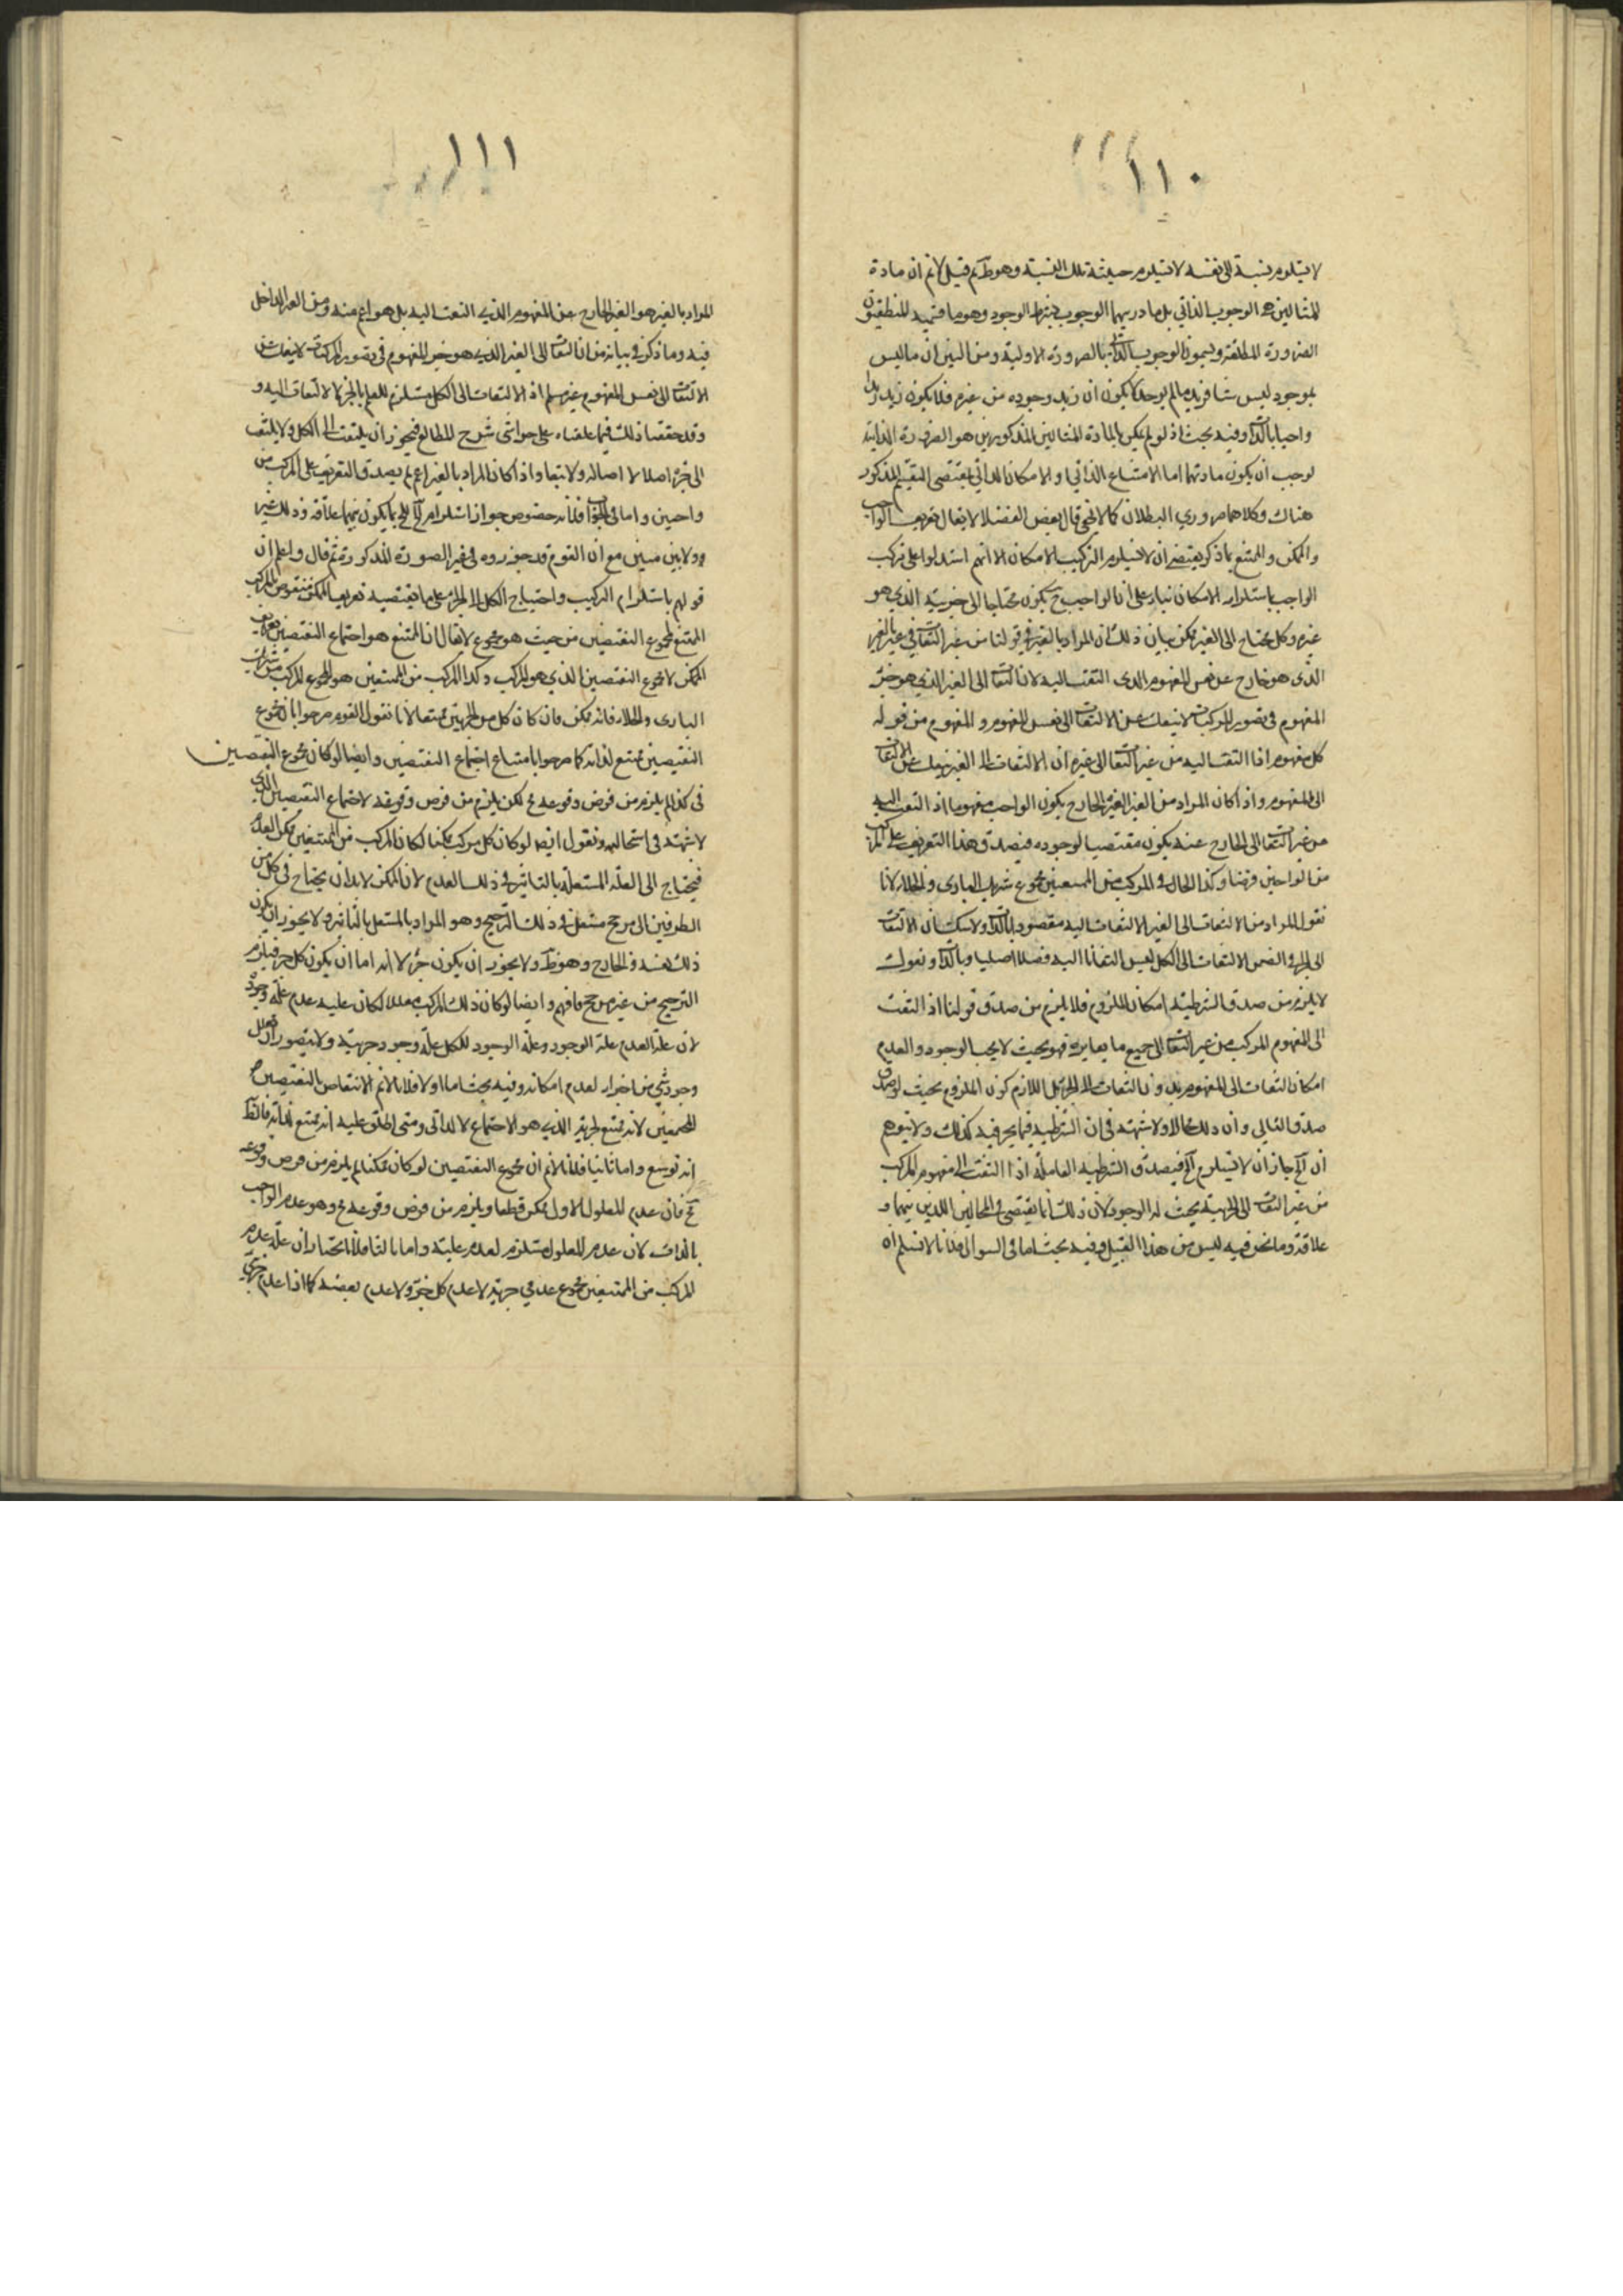 ١١٠
لا يستلزم نسبة الى نفسه لا يستلزم حيثية تلك النسبة وهو ظ ثم قيل لا نم ان مادة
المثالين هي الوجوب الذاتي بل مادتهما الوجوب بشرط الوجود وهو ما قسيمه المنطقيون
الضرورة المطلقة ويسمون الوجوب بالذات بالضرورة الاولية ومن البين ان ما ليس
بموجود ليس شيئا فزيد ما لم يوجد لا يكون ان زيد وجوده من غيره فلا يكون زيد زيدا
واجبا بالذات وفيه بحث اذ لو لم يكن المادة المثالين المذكورين هو الضرورة الذاتية
لوجب ان يكون مادتهما اما الامتناع الذاتي او الامكان الذاتي بمقتضى التقسيم المذكور
هناك وكلاهما ضروري البطلان كما لا يخفى قال بعض الفضلاء لا يقال تعريف الواجب
والممكن والممتنع بما ذكر يقتضي ان لا يستلزم التركيب الامكان الا انهم استدلوا على تركب
الواجب باستلزام الامكان بناء على ان الواجب ح يكون محتاجا الى جزئية الذي هو
غيره وكل محتاج الى الغير ممكن بيان ذلك ان المراد بالغير في قولنا من غير التفات الى غيره الغير
الذي هو خارج عن نفس المفهوم الذي التفت اليه لان التفات الى الغير الذي هو جزء
المفهوم في تصور المركبات لا ينفك عن الالتفات الى نفس المفهوم و المفهوم من قوله
كل مفهوم اذا التفت اليه من غير التفات الى غيره ان الالتفات الى الغير ينفك عن الالتفات
الى المفهوم واذا كان المراد من الغير الغير الخارج يكون الواجب مفهوما اذا التفت اليه
من غير التفات الى الخارج عنه يكون مقتضيا لوجوده فيصدق هذا التعريف على المركب
من الواجبين فرضا وكذا الحال في المركب من الممتنعين كمجموع شريك الباري والخلاء لانا
نقول المراد من الالتفات الى الغير الالتفات اليه مقصودا بالذات ولا شك ان الالتفات
الى الجزء في الضمن الالتفات الى الكل ليس التفاتا اليه قصدا اصليا وبالذات ونقول
لا يلزم من صدق الشرطية امكان الملزوم فلا يلزم من صدق قولنا اذا التفت
الى المفهوم المركب من غير التفات الى جميع ما يغايره فهو بحيث لا يجب الوجود والعدم
امكان التفات الى المفهوم بدون التفات الى الجزء بل اللازم كون الملزوم بحيث لو صدق
صدق التالي وان ذلك محالا ولا شبهة في ان الشرطية فيما يجري فيه كذلك ولا يتوهم
ان المح جاز ان لا يستلزم المح فيصدق الشرطية القائلة اذا التفت الى مفهوم المركب
من غير التفات الى الجزئية بحيث له الوجود لان ذلك انما يقتضي في المحالين اللذين بينهما
علاقة وما نحن فيه ليس من هذا القبيل وفيه بحث اما في السؤال فلانا لا نسلم ان
١١١
المراد بالغير هو الغير الخارج عن المفهوم الذي التفت اليه بل هو اعم منه ومن الغير الداخل
فيه وما ذكر في بيانه من ان التفات الى الغير الذي هو جزء المفهوم في تصور المركبات لا ينفك عن
الالتفات الى نفس المفهوم غير مسلم اذ الالتفات الى الكل يستلزم العلم بالجزء لا الالتفات اليه و
وقد حققنا ذلك فيما علقناه على حواشي شرح المطالع فيجوز ان يلتفت الى الكل ولا يلتفت
الى جزء اصلا لا اصالة ولا تبعا واذا كان المراد بالغير اعم لم يصدق التعريف على المركب من
واجبين واما في الجواب فلانه خصوص جواز استلزام المح للمح بما يكون بينهما علاقة وذلك غير
ولا بين مبين مع ان القوم قد جوزوه في غير الصورة المذكورة ثم قال واعلم ان
قولهم باستلزام التركيب واحتياج الكل الى الجزء على ما يقتضيه تعريف الممكن منقوض بالمركب
الممتنع كمجموع النقيضين من حيث هو مجموع لا يقال ان الممتنع هو اجتماع النقيضين
الممكن لا مجموع النقيضين الذي هو المركب وكذا المركب من الممتنعين هو المجموع المركب من شريك
الباري والخلاء فانه ممكن وان كان كل من الجزئين ممتنعا لانا نقول القوم صرحوا بان مجموع
النقيضين ممتنع لذاته كما صرحوا بامتناع اجتماع النقيضين وايضا لو كان مجموع النقيضين
في كذا لم يلزم من فرض وقوعه مح لكن يلزم من فرض وقوعه لاجتماع النقيضين الذي
لا شبهة في استحالته ونقول ايضا لو كان كل مركب ممكنا لكان المركب من الممتنعين ممكن العدم
فيحتاج الى العلة المستقلة بالتاثير في ذلك العدم لان الممكن لا بد ان يحتاج في كل من
الطرفين الى مرجح مستقل في ذلك الترجيح وهو المراد بالمستقل بالتاثير ولا يجوز ان يكون
ذلك نفسه والخارج وهو ظ ولا يجوز ان يكون جزء لانه اما ان يكون كل جزء فيلزم
الترجيح من غير مرجح فافهم وايضا لو كان ذلك المركب معللا لكان علية عدم علة وجوده
لان علة العدم علة الوجود وعلة الوجود للكل علة وجود جزئية ولا يتصور ان
وجود شيء من اجزائه لعدم امكانه وفيه بحث اما اولا فلانا لا نم الانتقاض بالنقيضين
المجتمعين لانه ممتنع لجزئه الذي هو الاجتماع لا لذاته ومتى اطلق عليه انه ممتنع لذاته
انه توسع واما ثانيا فلانا لا نم ان مجموع النقيضين لو كان ممكنا لم يلزم من فرض وقوعه
مح فان عدم المعلول الاول ممكن قطعا ويلزم من فرض وقوعه مح وهو عدم الواجب
بالذات لان عدم المعلول مستلزم لعدم علية واما ثالثا فلانا نختار ان علة عدم
المركب من الممتنعين مجموع عدمي جزئية لا عدم كل جزء ولا عدم بعضه كما اذا عدم جزئي